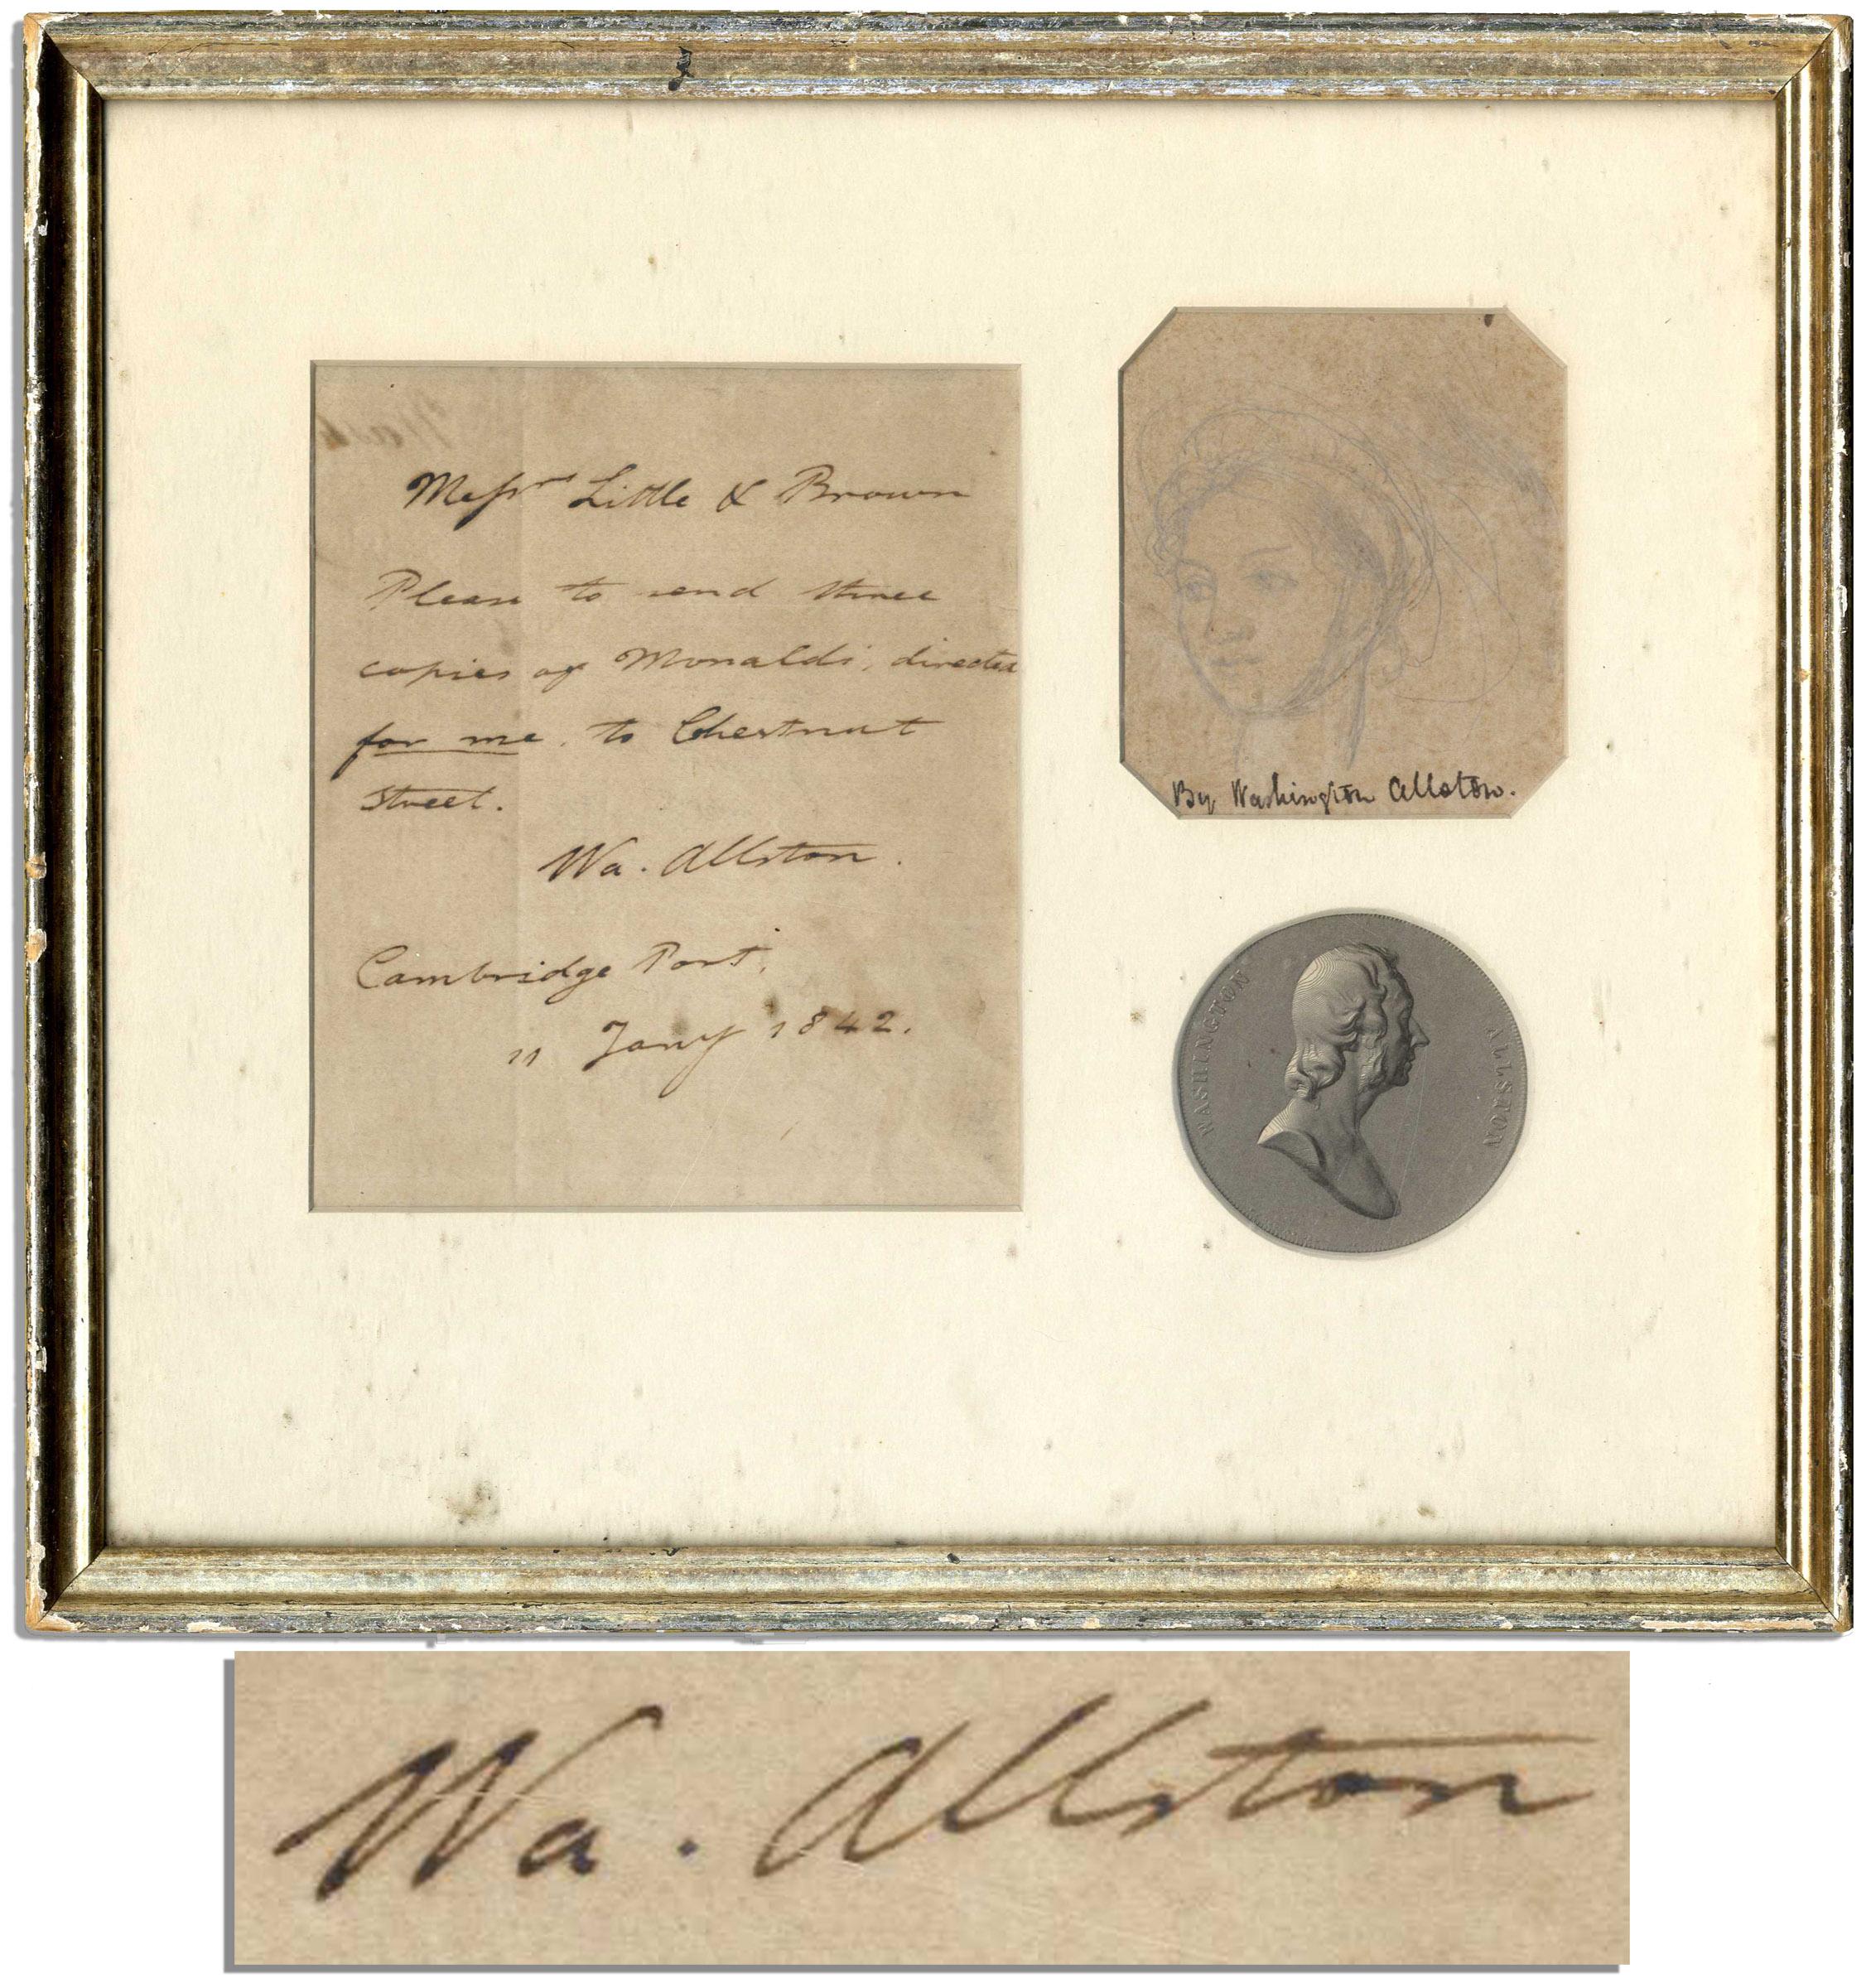 Messrs Little & Brown
Please to send three
copies of Monaldi, directed
for me, to Chestnut
Street.
Wa. Allston.
Cambridge Port,
11 Jany 1842.
By Washington Allston.
WASHINGTON ALLSTON
Wa. Allston